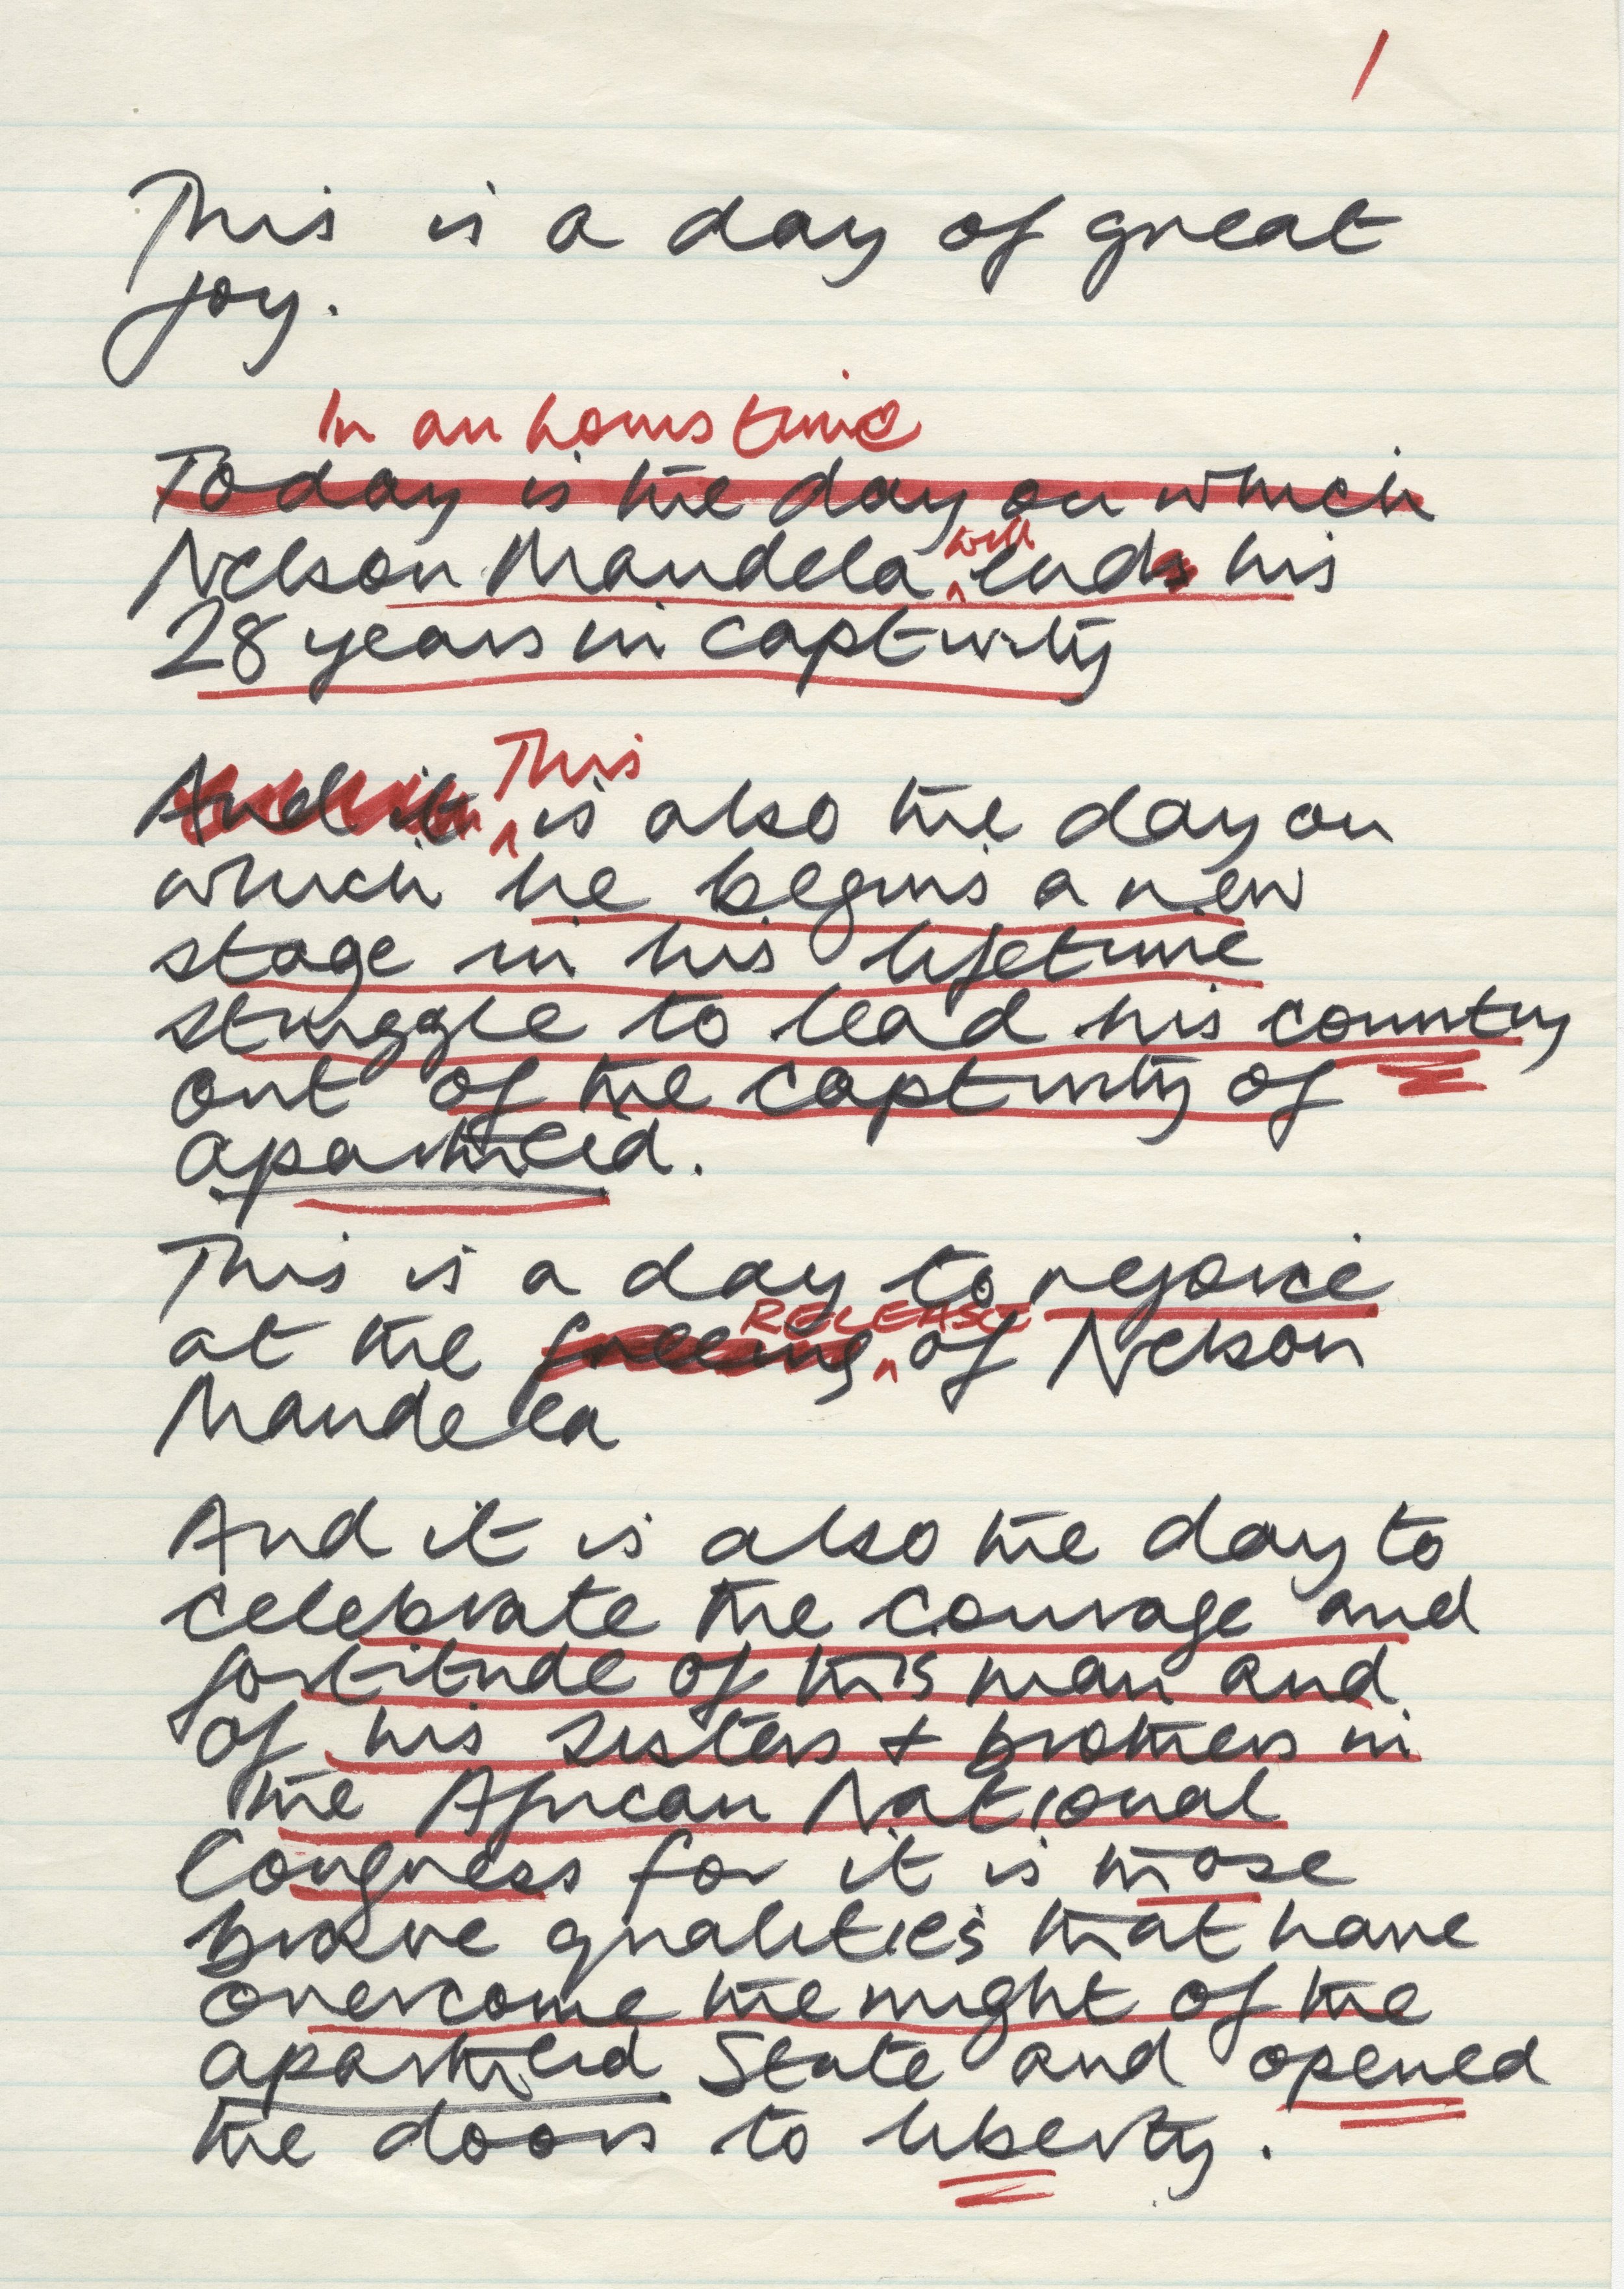 1
This is a day of great
joy.
In an hours time
Today is the day on which
Nelson Mandela will ends his
28 years in captivity
And it This is also the day on
which he begins a new
stage in his lifetime
struggle to lead his country
out of the captivity of
apartheid.
This is a day to rejoice
at the freeing RELEASE of Nelson
Mandela
And it is also the day to
celebrate the courage and
fortitude of this man and
of his sisters + brothers in
the African National
Congress for it is those
brave qualities that have
overcome the might of the
apartheid State and opened
the doors to liberty.